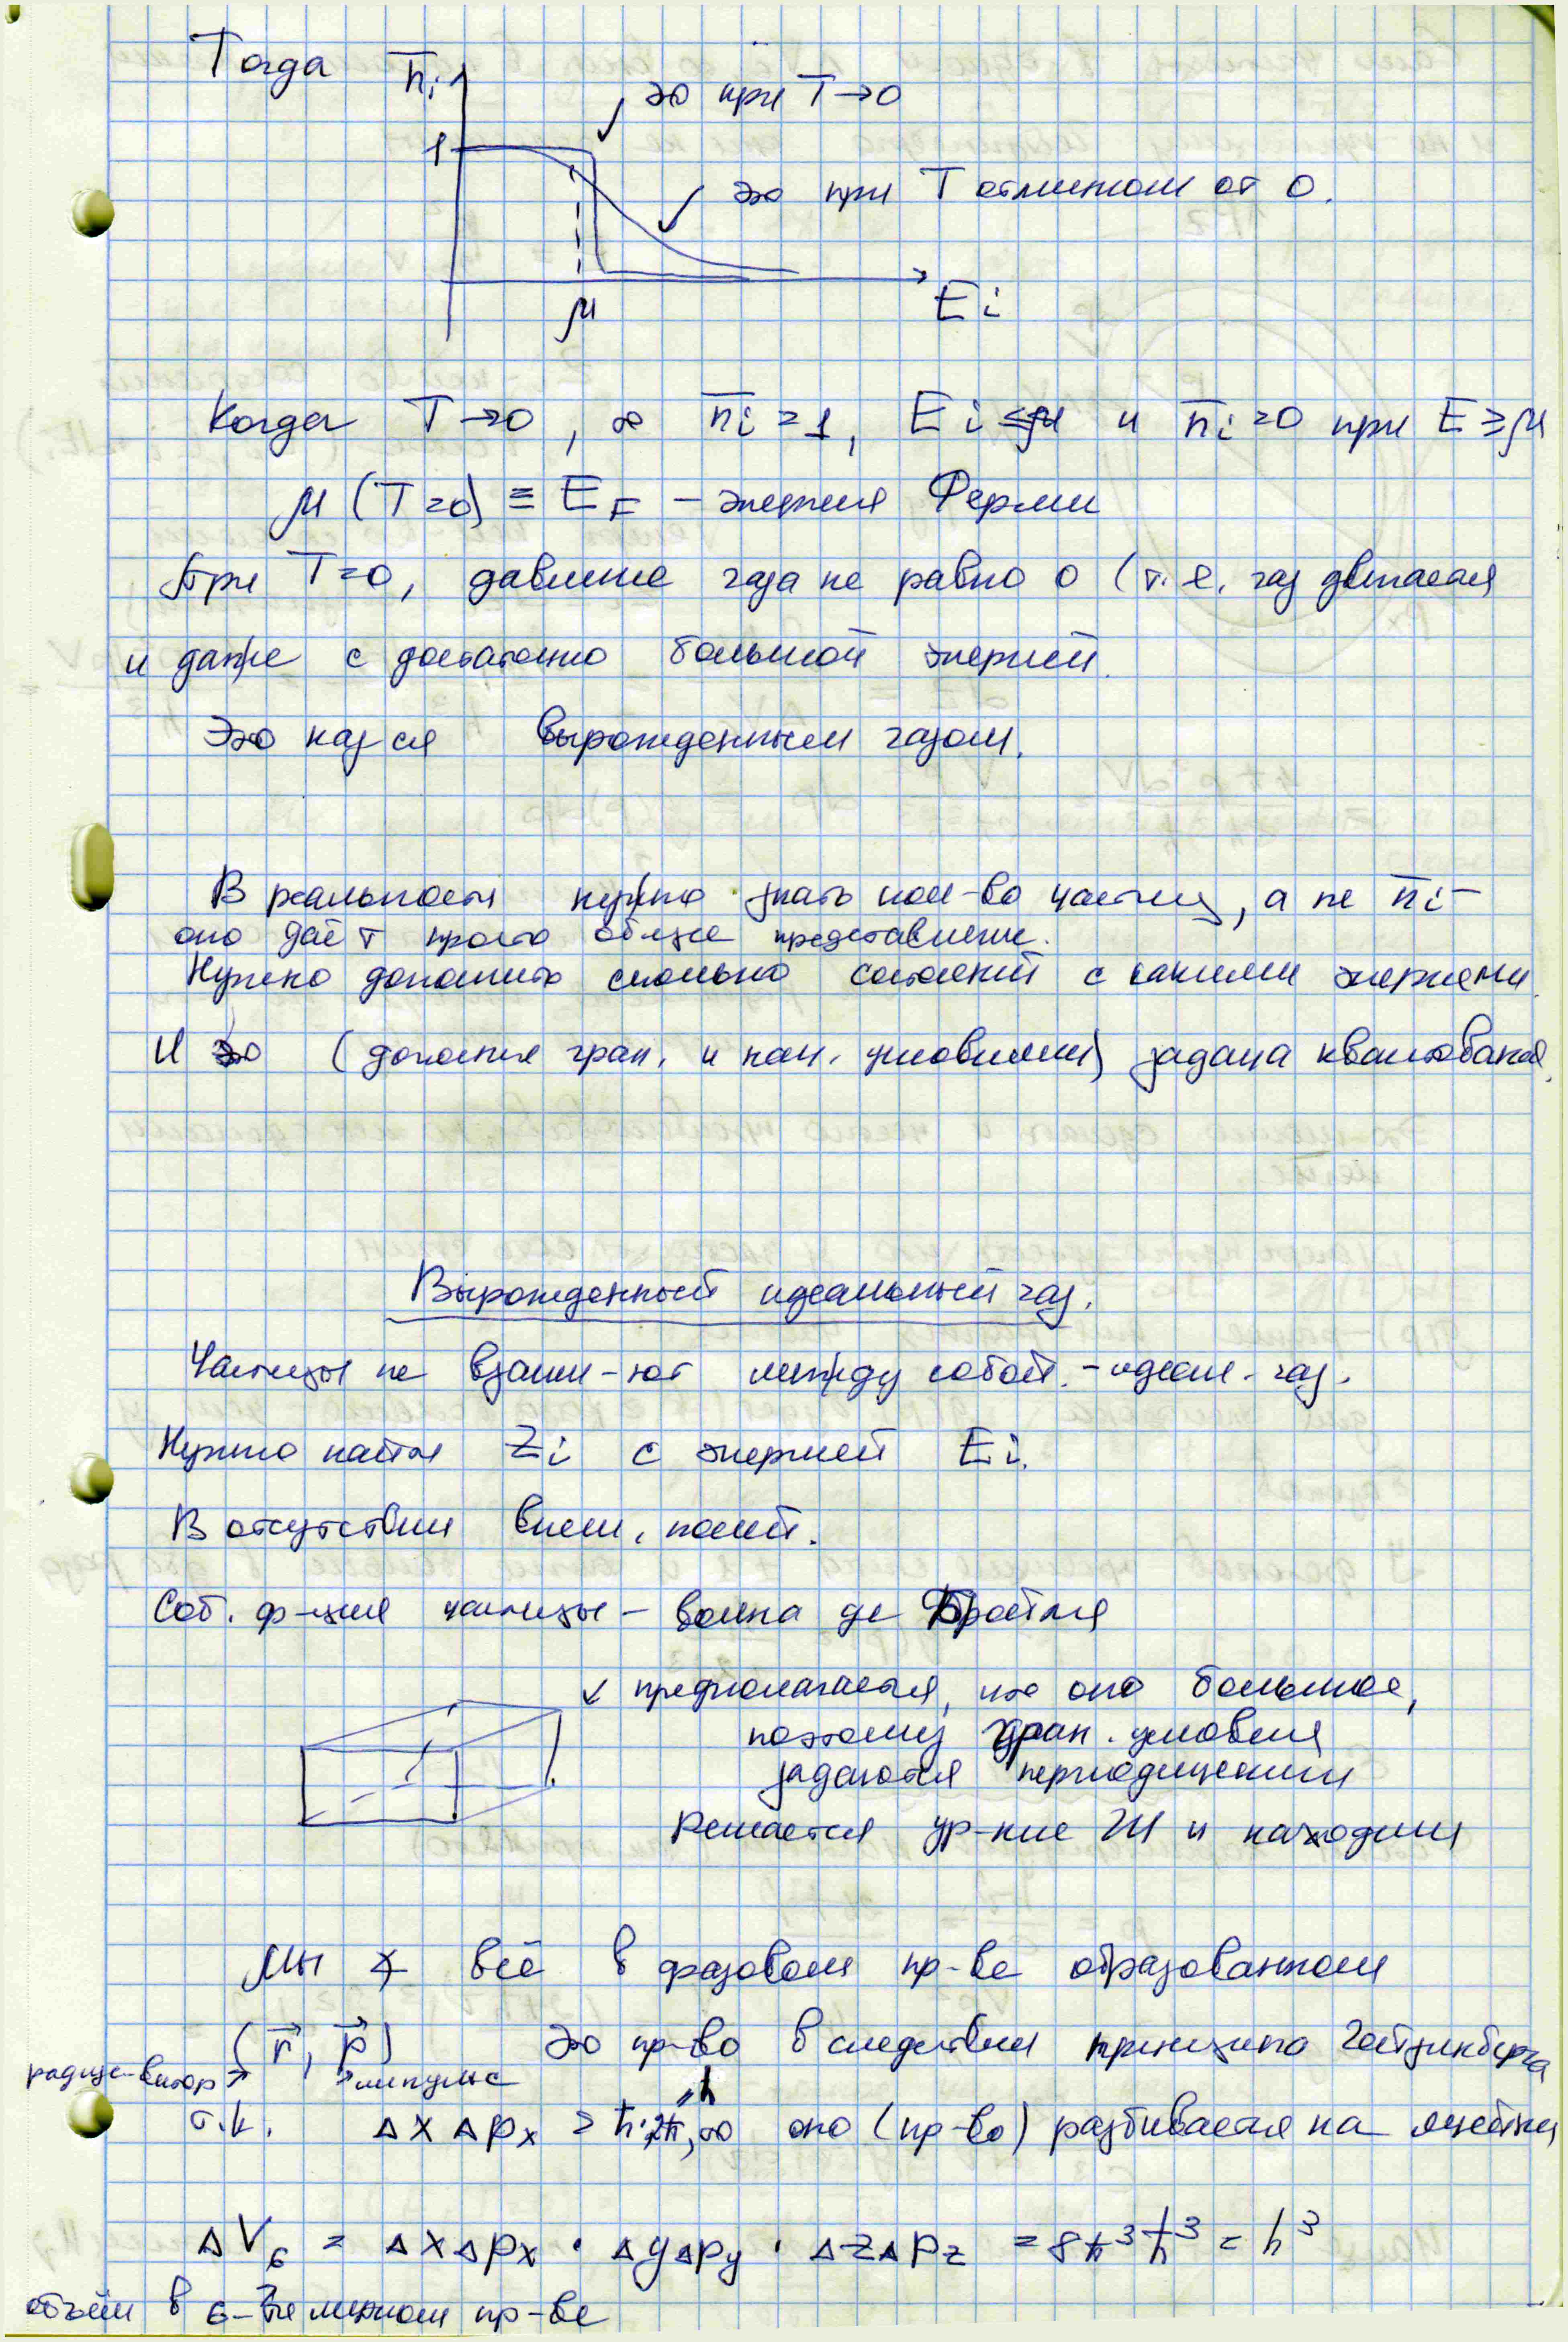 Тогда n̅i
это при T→0
1
это при T отличном от 0.
μ
Ei
Когда T→0, то n̅i = 1, Ei ≤ μ и n̅i = 0 при E ≥ μ
μ (T=0) ≡ E_F – энергия Ферми
При T=0, давление газа не равно 0 (т.е. газ двигается
и даже с достаточно большой энергией.
Это наз-ся вырожденным газом.
В реальности нужно знать кол-во частиц, а не n̅i –
оно даёт просто общее представление.
Нужно дополнить сколько состояний с какими энергиями.
И это (дополняя гран. и нач. условиями) задача квантования.
Вырожденный идеальный газ.
Частицы не взаим-ют между собой. – идеал. газ.
Нужно найти Zi с энергией Ei.
В отсутствии внеш. полей.
Соб. ф-ция частицы – волна де Бройля
предполагается, что оно большое,
поэтому гран. условия
задаются периодическими
Решается ур-ние Ш и находим
Мы ∡ всё в фазовом пр-ве образованном
(r⃗, p⃗) Это пр-во вследствии принципа Гейзинберга
радиус-вектор импульс
"h
т.к. Δx Δpx ≥ ħ·2π, то оно (пр-во) разбивается на ячейки
ΔV₆ = ΔxΔpx · ΔyΔpy · ΔzΔpz = 8π³ħ³ = h³
объём в 6-ти мерном пр-ве